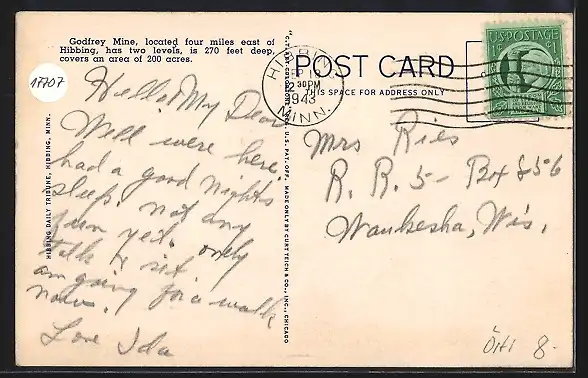 Godfrey Mine, located four miles east of
Hibbing, has two levels, is 270 feet deep,
covers an area of 200 acres.
17707
Hello! My Dear
Well were here
had a good nights
sleep. not any
yet. only
talk & sit
am going for a walk
now.
Love Ida
HIBBING DAILY TRIBUNE, HIBBING, MINN.
REG. U.S. PAT. OFF. MADE ONLY BY CURT TEICH & CO., INC., CHICAGO
POST CARD
THIS SPACE FOR ADDRESS ONLY
HIBBING
30 PM
1943
MINN.
U.S. POSTAGE
1¢ 1¢
Mrs Ries
R. R. 5- Box 856
Waukesha, Wis.
ÖHI 8.-